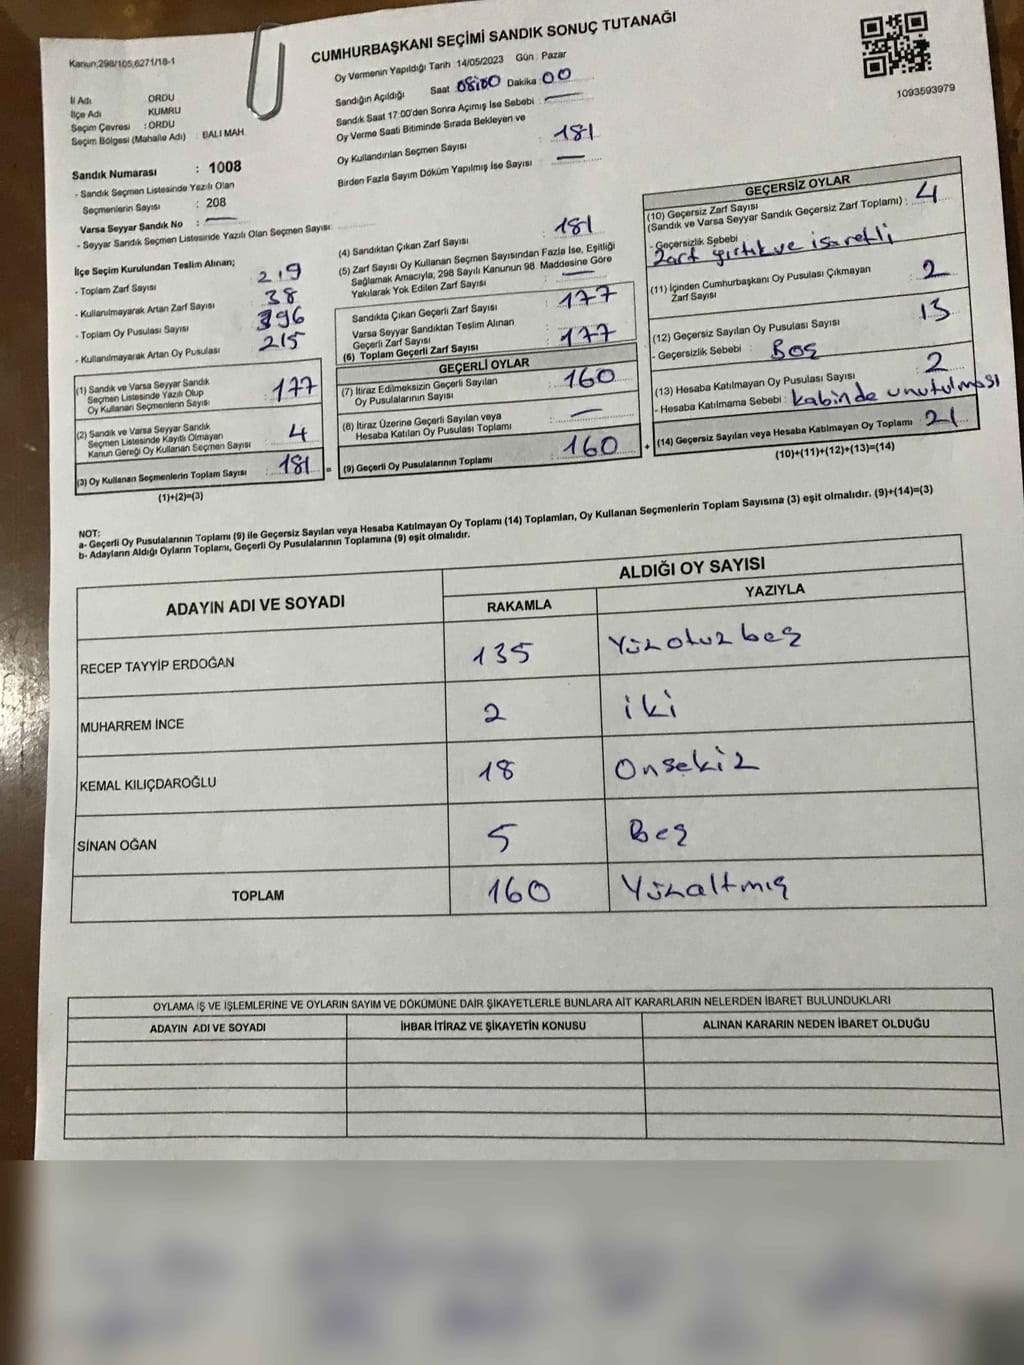 CUMHURBAŞKANI SEÇİMİ SANDIK SONUÇ TUTANAĞI
Kanun;298/105,6271/18-1
Oy Vermenin Yapıldığı Tarih : 14/05/2023 Gün : Pazar
Sandığın Açıldığı Saat 08:00 Dakika : 00
Sandık Saat 17:00'den Sonra Açımış İse Sebebi : —
Oy Verme Saati Bitiminde Sırada Bekleyen ve
Oy Kullandırılan Seçmen Sayısı : 181
Birden Fazla Sayım Döküm Yapılmış İse Sayısı : —
1093593979
İl Adı ORDU
İlçe Adı KUMRU
Seçim Çevresi : ORDU
Seçim Bölgesi (Mahalle Adı) : BALI MAH.
Sandık Numarası : 1008
- Sandık Seçmen Listesinde Yazılı Olan
Seçmenlerin Sayısı : 208
Varsa Seyyar Sandık No : —
- Seyyar Sandık Seçmen Listesinde Yazılı Olan Seçmen Sayısı:
İlçe Seçim Kurulundan Teslim Alınan;
- Toplam Zarf Sayısı 219
- Kullanılmayarak Artan Zarf Sayısı 38
- Toplam Oy Pusulası Sayısı 396
- Kullanılmayarak Artan Oy Pusulası 215
(1) Sandık ve Varsa Seyyar Sandık
Seçmen Listesinde Yazılı Olup
Oy Kullanan Seçmenlerin Sayısı : 177
(2) Sandık ve Varsa Seyyar Sandık
Seçmen Listesinde Kayıtlı Olmayan
Kanun Gereği Oy Kullanan Seçmen Sayısı : 4
(3) Oy Kullanan Seçmenlerin Toplam Sayısı : 181 =
(1)+(2)=(3)
(4) Sandıktan Çıkan Zarf Sayısı : 181
(5) Zarf Sayısı Oy Kullanan Seçmen Sayısından Fazla İse, Eşitliği
Sağlamak Amacıyla, 298 Sayılı Kanunun 98. Maddesine Göre
Yakılarak Yok Edilen Zarf Sayısı : —
Sandıkta Çıkan Geçerli Zarf Sayısı : 177
Varsa Seyyar Sandıktan Teslim Alınan
Geçerli Zarf Sayısı
(6) Toplam Geçerli Zarf Sayısı : 177
GEÇERLİ OYLAR
(7) İtiraz Edilmeksizin Geçerli Sayılan
Oy Pusulalarının Sayısı : 160
(8) İtiraz Üzerine Geçerli Sayılan veya
Hesaba Katılan Oy Pusulası Toplamı : —
(9) Geçerli Oy Pusulalarının Toplamı : 160 +
GEÇERSİZ OYLAR
(10) Geçersiz Zarf Sayısı
(Sandık ve Varsa Seyyar Sandık Geçersiz Zarf Toplamı) : 4
- Geçersizlik Sebebi
Zarf yırtık ve işaretli
(11) İçinden Cumhurbaşkanı Oy Pusulası Çıkmayan
Zarf Sayısı : 2
(12) Geçersiz Sayılan Oy Pusulası Sayısı : 13
- Geçersizlik Sebebi : Boş
(13) Hesaba Katılmayan Oy Pusulası Sayısı : 2
- Hesaba Katılmama Sebebi : kabinde unutulması
(14) Geçersiz Sayılan veya Hesaba Katılmayan Oy Toplamı : 21
(10)+(11)+(12)+(13)=(14)
NOT:
a- Geçerli Oy Pusulalarının Toplamı (9) ile Geçersiz Sayılan veya Hesaba Katılmayan Oy Toplamı (14) Toplamları, Oy Kullanan Seçmenlerin Toplam Sayısına (3) eşit olmalıdır. (9)+(14)=(3)
b- Adayların Aldığı Oyların Toplamı, Geçerli Oy Pusulalarının Toplamına (9) eşit olmalıdır.
ADAYIN ADI VE SOYADI ALDIĞI OY SAYISI
RAKAMLA YAZIYLA
RECEP TAYYİP ERDOĞAN 135 Yüzotuz beş
MUHARREM İNCE 2 iki
KEMAL KILIÇDAROĞLU 18 Onsekiz
SİNAN OĞAN 5 Beş
TOPLAM 160 Yüzaltmış
OYLAMA İŞ VE İŞLEMLERİNE VE OYLARIN SAYIM VE DÖKÜMÜNE DAİR ŞİKAYETLERLE BUNLARA AİT KARARLARIN NELERDEN İBARET BULUNDUKLARI
ADAYIN ADI VE SOYADI İHBAR İTİRAZ VE ŞİKAYETİN KONUSU ALINAN KARARIN NEDEN İBARET OLDUĞU